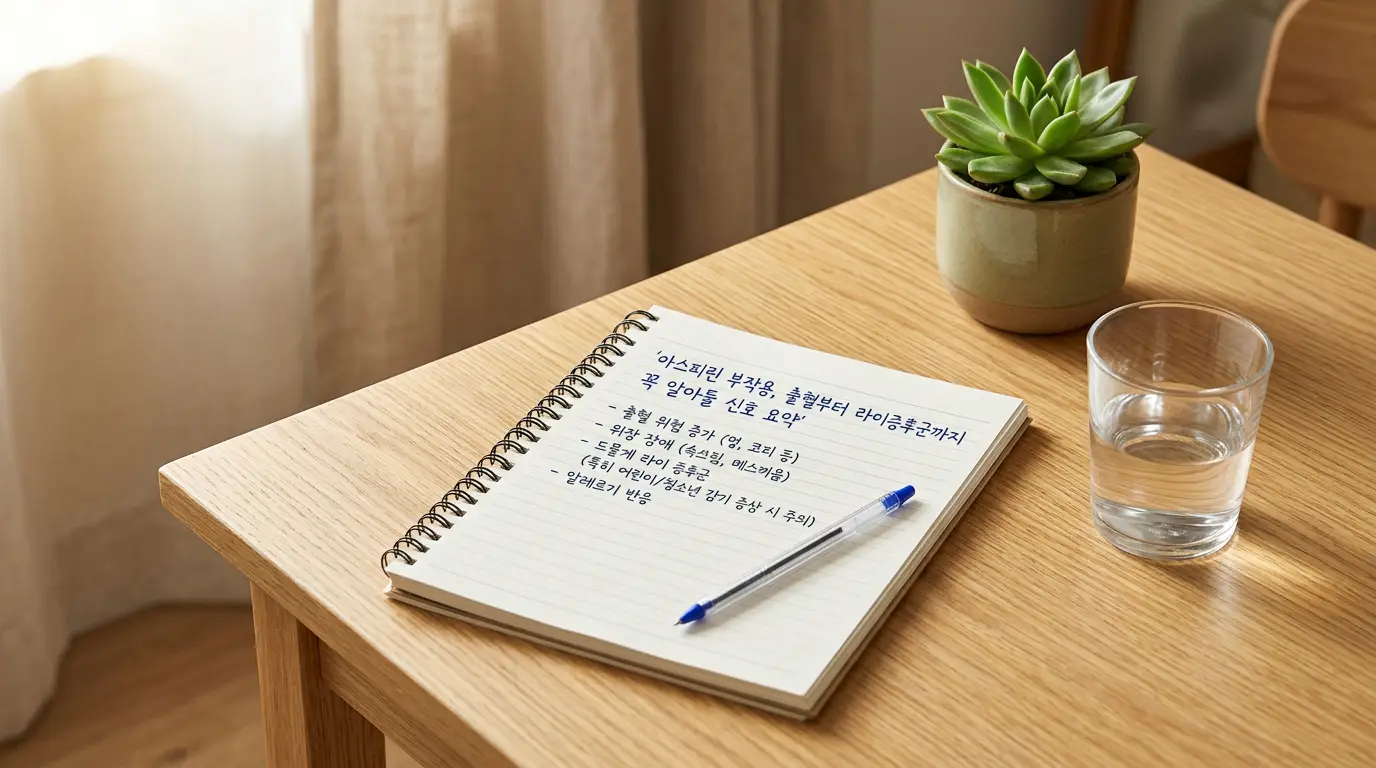 '아스피린 부작용, 출혈부터 라이증후군까지
꼭 알아들 신호 요약'
- 출혈 위험 증가 (멍, 코티 등)
- 위장 장애 (속쓰림, 메스꺼움)
- 드물게 라이 증후군
(특히 어린이/청소년 감기 증상 시 주의)
- 알레르기 반응